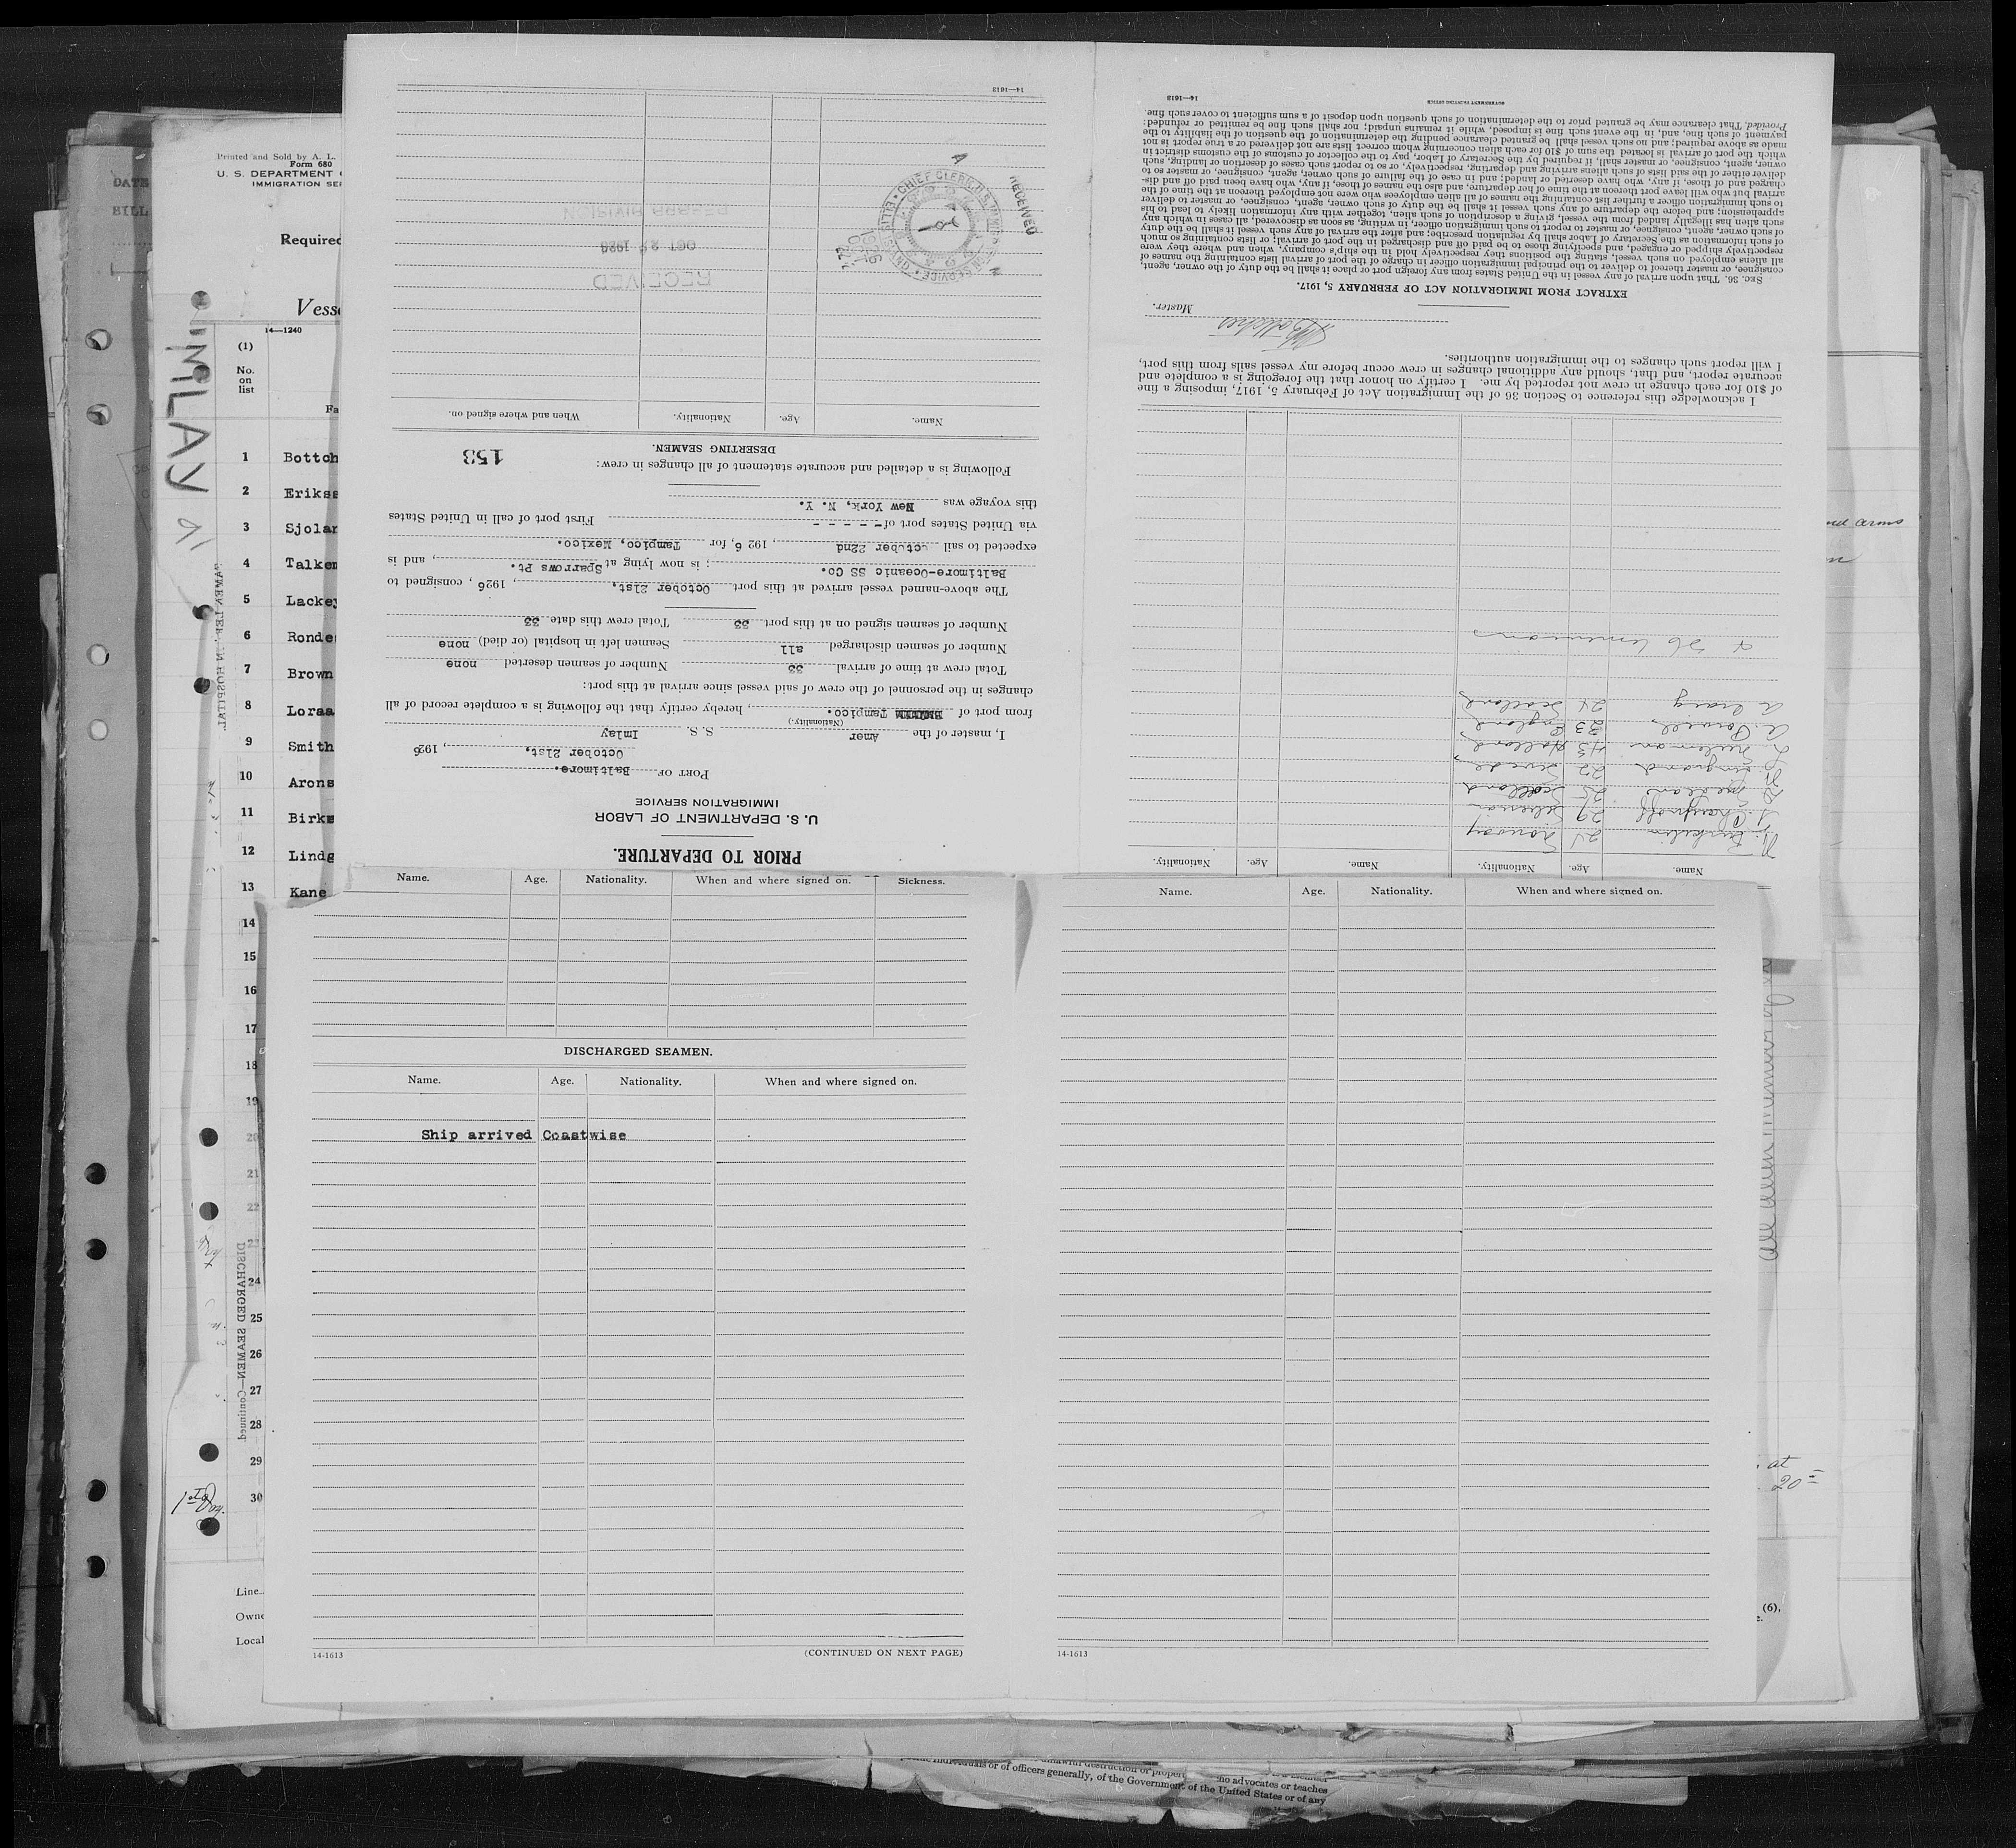 Printed and Sold by A. L.
Form 680
U. S. DEPARTMENT
IMMIGRATION SER
DATE
BILL
Required
Vesse
14—1240
(1)
No.
on
list
Fa
IMLAY
1 Bottch
2 Erikss
3 Sjolan
4 Talken
5 Lackey
6 Ronde
7 Brown
8 Loraa
9 Smith
10 Arons
11 Birke
12 Lindg
13 Kane
14
15
16
17
18
19
20
21
22
23
24
25
26
27
28
29
30
SEAMEN LEFT IN HOSPITAL
DISCHARGED SEAMEN—Continued.
Line
Owne
Local
PRIOR TO DEPARTURE.
U. S. DEPARTMENT OF LABOR
IMMIGRATION SERVICE
PORT OF Baltimore.
October 21st, , 1926
I, master of the Amer S. S. Imlay
(Nationality.)
from port of Tampico. , hereby certify that the following is a complete record of all
changes in the personnel of the crew of said vessel since arrival at this port:
Total crew at time of arrival 33 Number of seamen deserted none
Number of seamen discharged all Seamen left in hospital (or died) none
Number of seamen signed on at this port 33 Total crew this date 33
The above-named vessel arrived at this port October 21st, , 1926 , consigned to
Baltimore-Oceanic SS Co. ; is now lying at Sparrows Pt. , and is
expected to sail October 22nd , 1926, for Tampico, Mexico.
via United States port of - - - - - First port of call in United States
this voyage was New York, N. Y.
Following is a detailed and accurate statement of all changes in crew:
DESERTING SEAMEN.
153
Name. Age. Nationality. When and where signed on.
RECEIVED
OCT 22 1926
RECEIVED
CHIEF CLERK, U.S. IMMIGRATION SERVICE • ELLIS ISLAND
14—1613
Name. Age. Nationality. Name. Age. Nationality.
24 Norway
29
25 Scotland
22
43 Holland
A. Powell 33 England
A Craig 24 Scotland
& 26 Americans
I acknowledge this reference to Section 36 of the Immigration Act of February 5, 1917, imposing a fine
of $10 for each change in crew not reported by me. I certify on honor that the foregoing is a complete and
accurate report, and that, should any additional changes in crew occur before my vessel sails from this port,
I will report such changes to the immigration authorities.
Master.
EXTRACT FROM IMMIGRATION ACT OF FEBRUARY 5, 1917.
SEC. 36. That upon arrival of any vessel in the United States from any foreign port or place it shall be the duty of the owner, agent,
consignee, or master thereof to deliver to the principal immigration officer in charge of the port of arrival lists containing the names of
all aliens employed on such vessel, stating the positions they respectively hold in the ship's company, when and where they were
respectively shipped or engaged, and specifying those to be paid off and discharged in the port of arrival; or lists containing so much
of such information as the Secretary of Labor shall by regulation prescribe; and after the arrival of any such vessel it shall be the duty
of such owner, agent, consignee, or master to report to such immigration officer, in writing, as soon as discovered, all cases in which any
such alien has illegally landed from the vessel, giving a description of such alien, together with any information likely to lead to his
apprehension; and before the departure of any such vessel it shall be the duty of such owner, agent, consignee, or master to deliver
to such immigration officer a further list containing the names of all alien employees who were not employed thereon at the time of the
arrival but who will leave port thereon at the time of her departure, and also the names of those, if any, who have been paid off and dis-
charged and of those, if any, who have deserted or landed; and in case of the failure of such owner, agent, consignee, or master so to
deliver either of the said lists of such aliens arriving and departing, respectively, or so to report such cases of desertion or landing, such
owner, agent, consignee, or master shall, if required by the Secretary of Labor, pay to the collector of customs of the customs district in
which the port of arrival is located the sum of $10 for each alien concerning whom correct lists are not delivered or a true report is not
made as above required; and no such vessel shall be granted clearance pending the determination of the question of the liability to the
payment of such fine, and, in the event such fine is imposed, while it remains unpaid; nor shall such fine be remitted or refunded:
Provided, That clearance may be granted prior to the determination of such question upon deposit of a sum sufficient to cover such fine.
14—1613
GOVERNMENT PRINTING OFFICE
Name. Age. Nationality. When and where signed on. Sickness.
DISCHARGED SEAMEN.
Name. Age. Nationality. When and where signed on.
Ship arrived Coastwise
14-1613
(CONTINUED ON NEXT PAGE)
Name. Age. Nationality. When and where signed on.
14-1613
at
20
(6),
no advocates or teaches
of officers generally, of the Government of the United States or of any